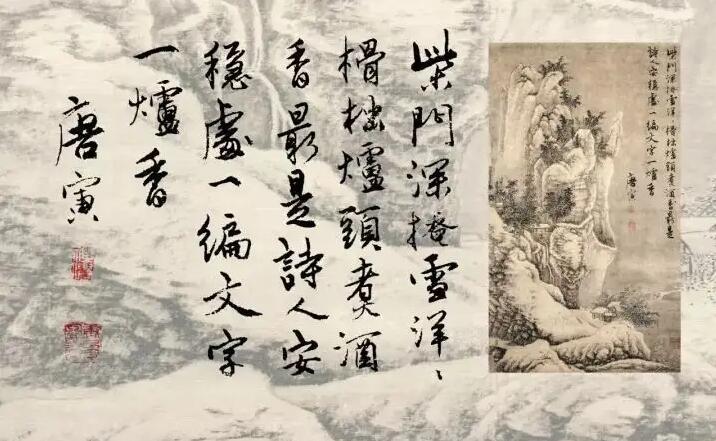 柴門深掩雪洋〻
榾柮爐頭煮酒
香最是詩人安
穩處一編文字
一爐香
唐寅
柴門深掩雪洋〻榾柮爐頭煮酒香最是
詩人安穩處一編文字一爐香
唐寅